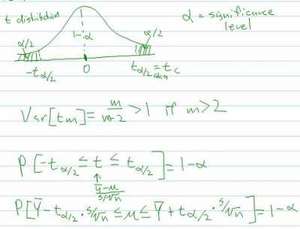 t distribution
α = significance level
α/2
1-α
α/2
-tα/2
0
tα/2 = tc
Var[tm] = m/m-2 > 1 if m > 2
P[-tα/2 ≤ t ≤ tα/2] = 1-α
Ȳ-μ / s/√n
P[Ȳ - tα/2 · s/√n ≤ μ ≤ Ȳ + tα/2 · s/√n] = 1-α